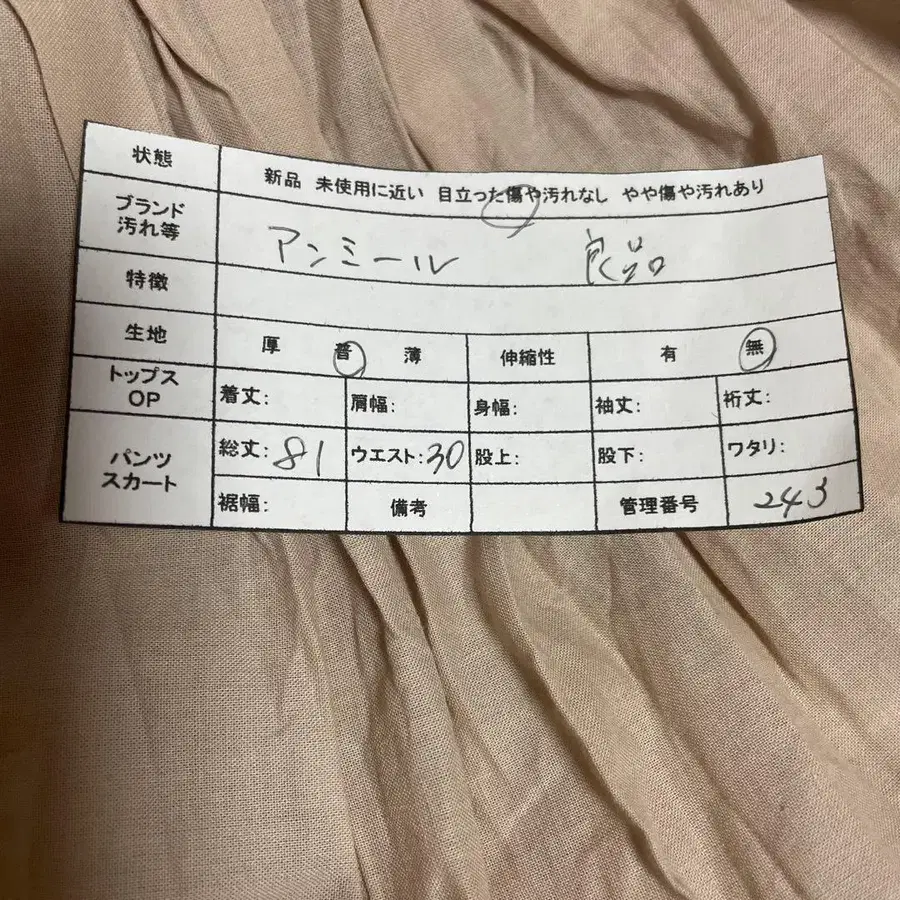 状態 新品 未使用に近い 目立った傷や汚れなし やや傷や汚れあり
ブランド
汚れ等 アンミール 良品
特徴
生地 厚 普 薄 伸縮性 有 無
トップス
OP 着丈: 肩幅: 身幅: 袖丈: 裄丈:
パンツ
スカート 総丈: 81 ウエスト: 30 股上: 股下: ワタリ:
裾幅: 備考 管理番号 243